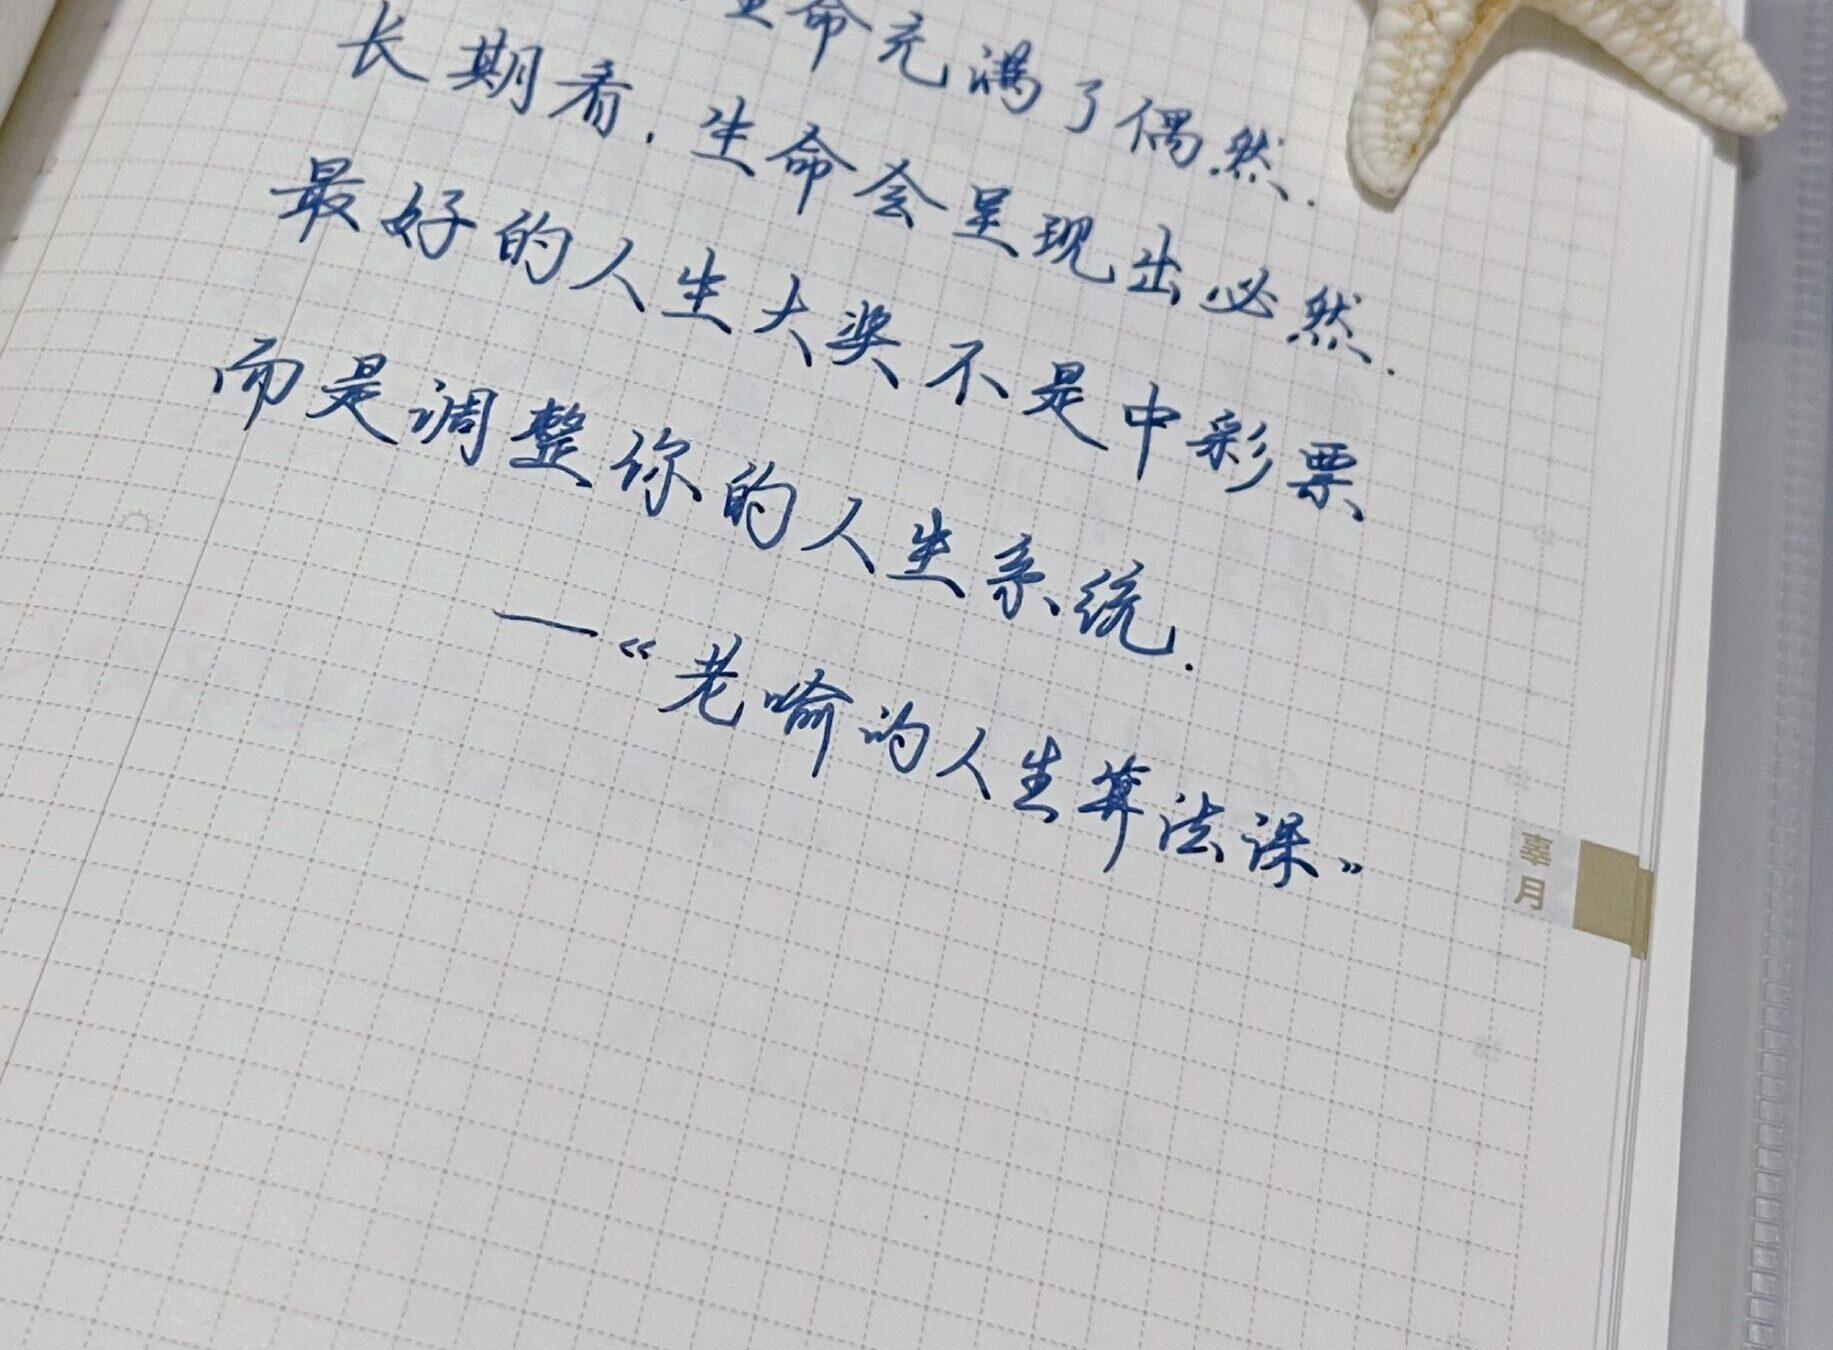 生命充满了偶然.
长期看.生命会呈现出必然.
最好的人生大奖不是中彩票
而是调整你的人生系统.
—“老喻的人生算法课”
辜月